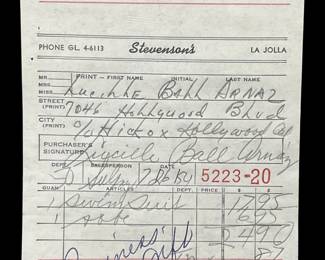 PHONE GL. 4-6113 Stevenson's LA JOLLA
MR. PRINT - FIRST NAME INITIAL LAST NAME
MRS.
MISS Lucille Ball ARNAZ
STREET (PRINT) 7046 Hollywood Blvd
CITY (PRINT) c/o Hickox Hollywood Cal
PURCHASER'S SIGNATURE Lucille Ball Arnaz
DEPT. DATE 5223-20
QUAN. ARTICLES PRICE AMOUNT
1 Swim Suit 17.95
1 robe 6.95
24.90